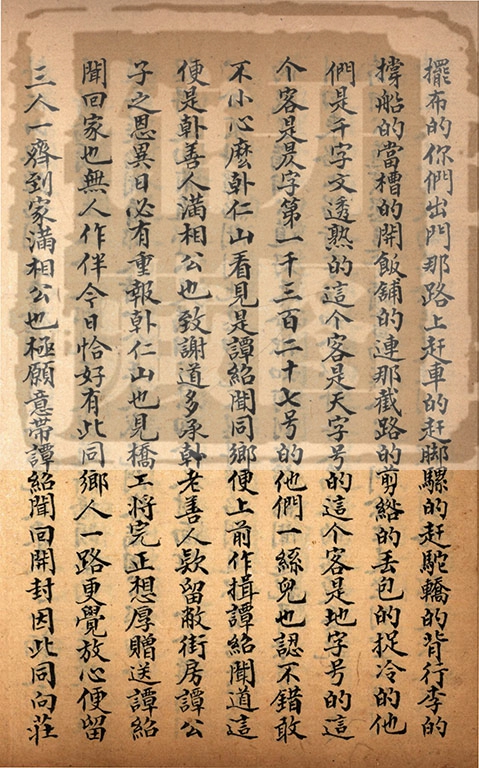 擺布的你們出門那路上赶車的赶脚騾的赶駝轎的背行李的
撑船的當槽的開飯舖的連那截路的剪綹的丢包的捉冷的他
們是千字文透熟的這个客是天字号的這个客是地字号的這
个客是昃字第一千三百二十七号的他們一絲兒也認不錯敢
不小心麽卦仁山看見是譚紹聞同鄉便上前作揖譚紹聞道這
便是卦善人滿相公也致謝道多承卦老善人欵留敝街房譚公
子之恩異日必有重報卦仁山也見橋工将完正想厚贈送譚紹
聞回家也無人作伴今日恰好有此同鄉人一路更覺放心便留
三人一齊到家滿相公也極願意帯譚紹聞回開封因此同向莊